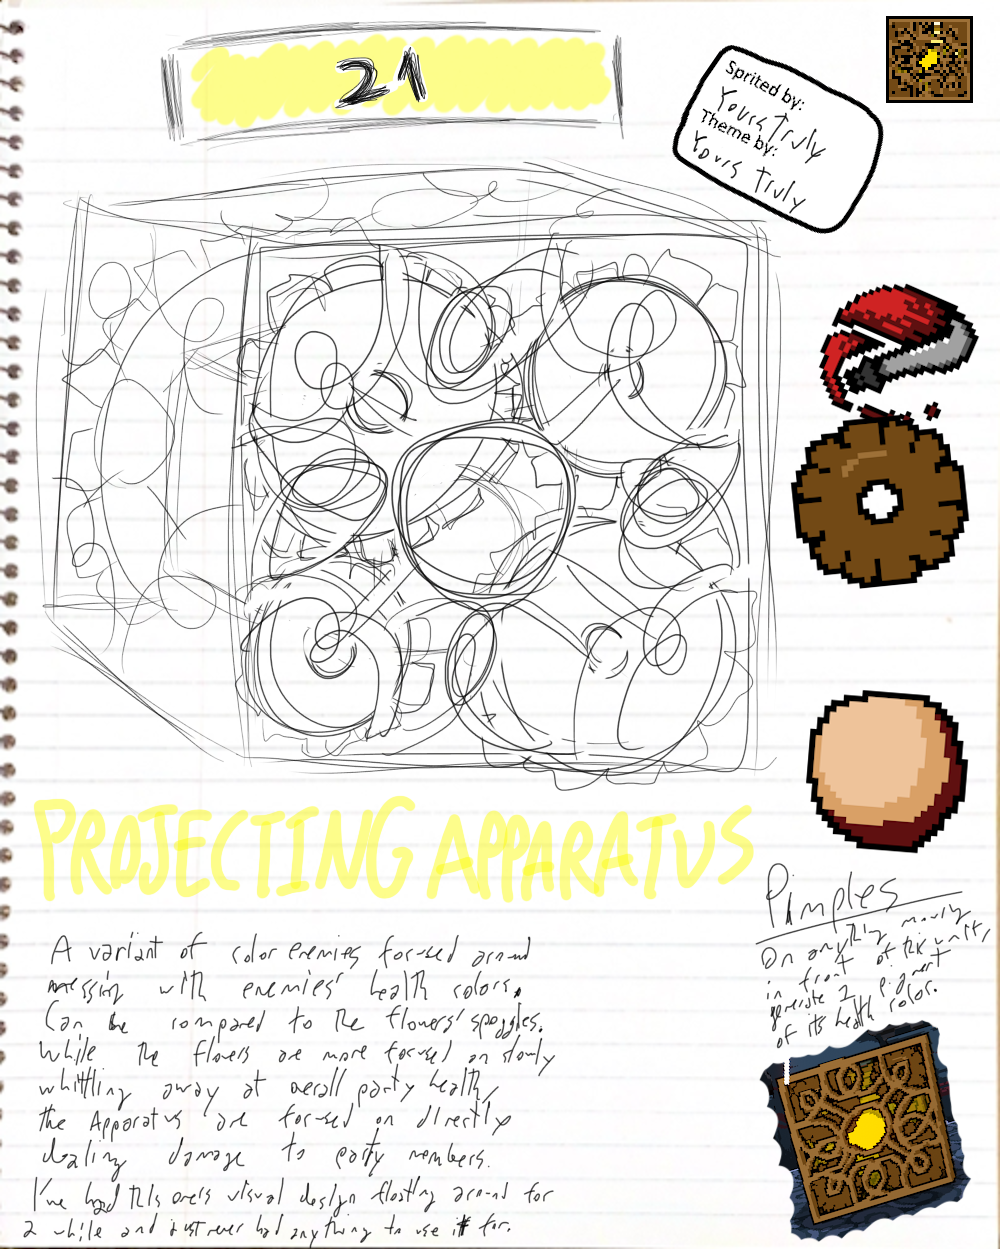 21
Sprited by:
Yours Truly
Theme by:
Yours Truly
PROJECTING APPARATUS
A variant of color enemies focused around
messing with enemies' health colors.
Can be compared to the flowers' spoggles.
While the flowers are more focused on slowly
whittling away at overall party health,
the Apparatus are focused on directly
dealing damage to party members.
I've had this one's visual design floating around for
a while and just never had anything to use it for.
Pimples
On anything moving
in front of this unit,
generate 2 pigment
of its health color.